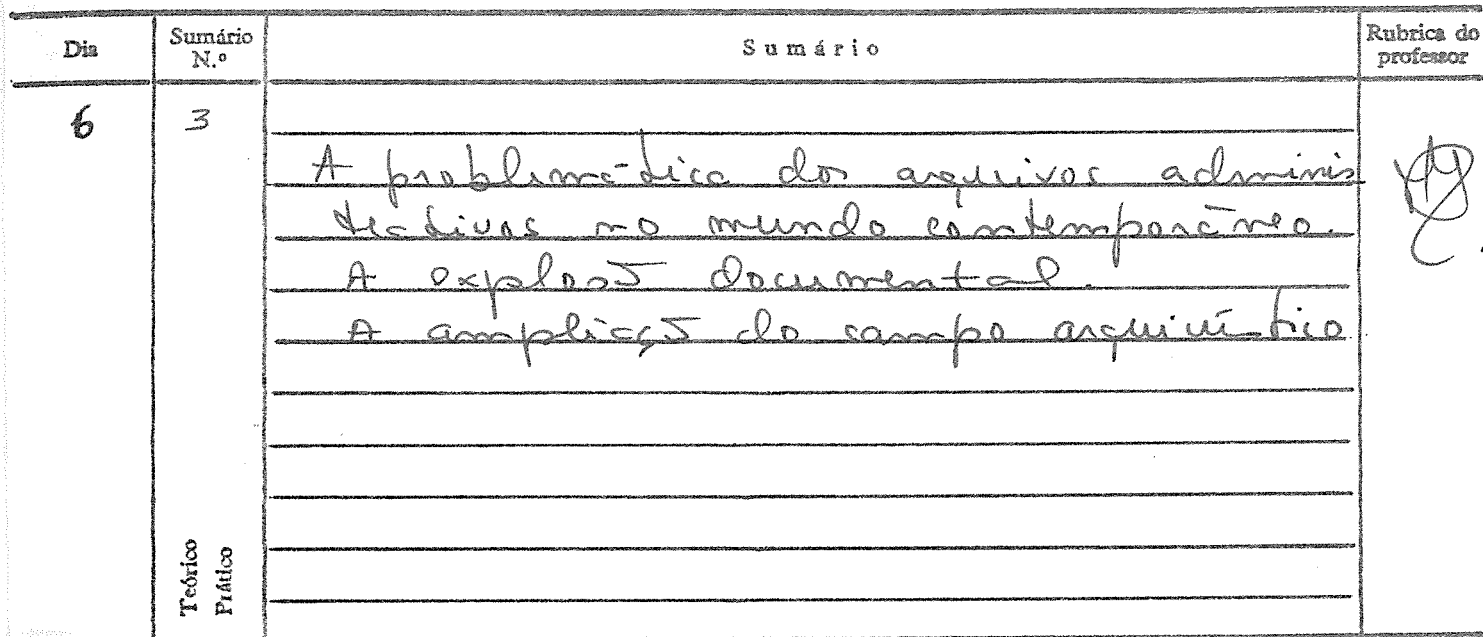 Dia Sumário N.º Sumário Rubrica do professor
6 3
A problemática dos arquivos adminis
trativos no mundo contemporâneo.
A explosõ documental.
A ampliaçõ do campo arquivístico
Teórico
Prático